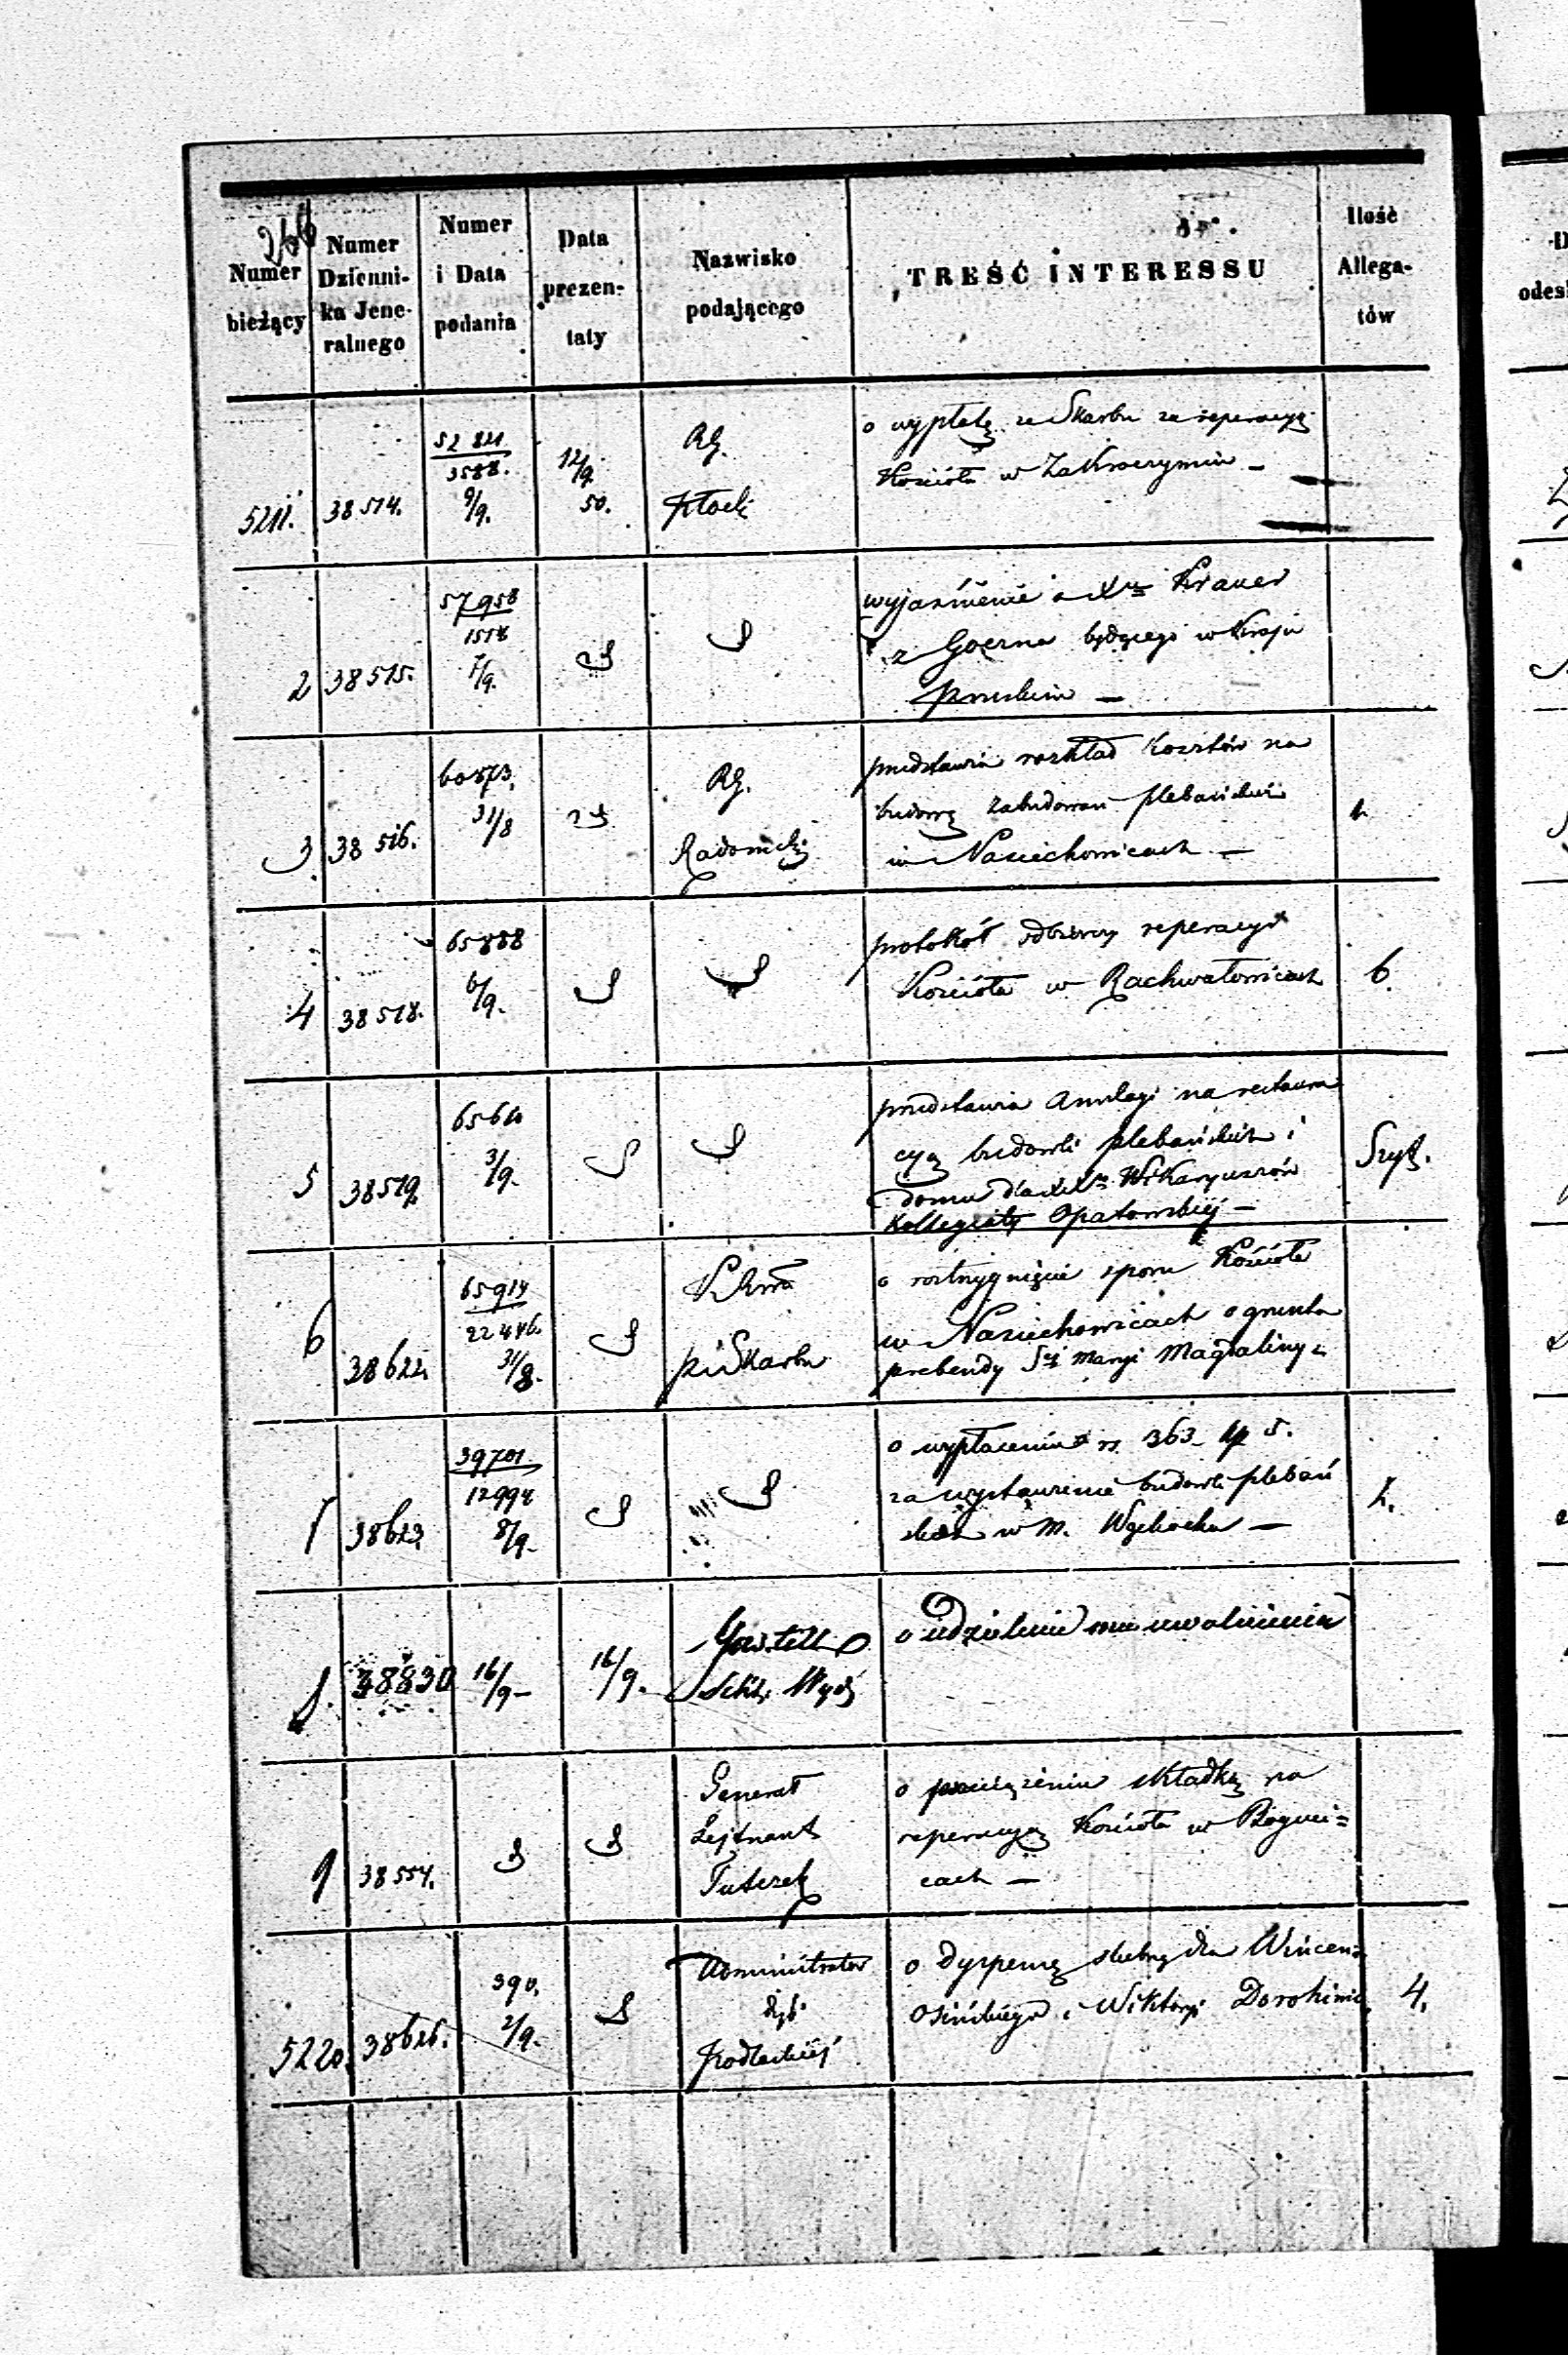 Numer bieżący
Numer Dzienni-ka Jene-ralnego
Numer i Data podania
Data prezen-taty
Nazwisko podającego
TREŚĆ INTERESSU
Ilość Allega-tów
5211. 38514.
3588.
9/9.
12/9.
50.
RG.
Płocki
o wypłatę ze Skarbu za reperacyą
Kościoła w Zakroczymiu —
2 38515.
57958
7/9.
wyjaśnienie
Krauer
z Goerna będącego w Kraju
Pruskim —
3 38516.
31/8
RG.
Radomski
przedstawia rozkład kosztów na
budowę zabudowań plebańskich
w Nasiechowicach —
4 38518.
65888
6/9.
protokół odbiorczy reperacyi
Kościoła w Rachwałowicach
6.
5 38519
3/9.
przedstawia Anszlagi na restaura
cyą budowli plebańskich i
domu dla XX Wikaryuszów
Kollegiaty Opatowskiej —
6 38622.
65914
22446.
31/8.
pi Skarbu
o roztrzygnięcie sporu Kościoła
w Nasiechowicach o grunta
prebendy Sej Maryi Magdaliny
7 38623
39701
12994
8/9.
o wypłacenie rs. 363 kp 5.
za wystawienie budowli plebań
skich w m. Wąchocku —
8. 38830
16/9 —
16/9.
o udzielenie mu uwolnienia
9 38554.
Generał
Lejtnant
Tutczek
o
składką na
reperacyą Kościoła w Boguci=
cach —
5220. 38626.
390.
2/9.
Administrator
dyi
Podlaskiej
o dyspensę ślubną dla Wincen.
Osińskiego i Wiktoryi
4.